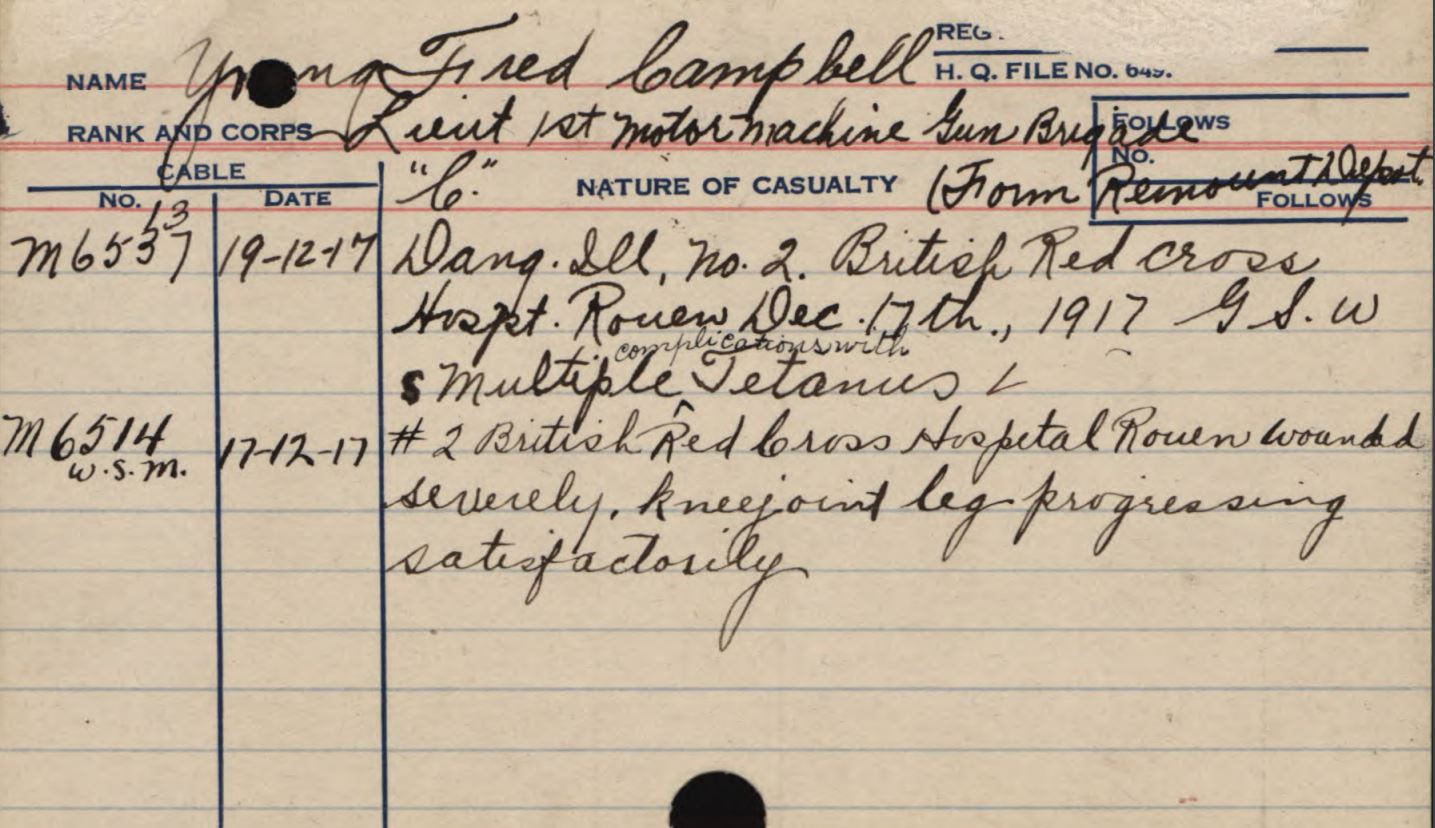 REG.
NAME Young Fred Campbell H. Q. FILE NO. 649.
RANK AND CORPS Lieut 1st Motor Machine Gun Brigade FOLLOWS
CABLE NO.
NO. DATE "C." NATURE OF CASUALTY (Form Remount Depot. FOLLOWS
13
M6537 19-12-17 Dang. Ill, No. 2. British Red Cross
Hospt. Rouen Dec. 17th., 1917 G S. W
complications with
s Multiple ^ Tetanus
M6514 17-12-17 # 2 British Red Cross Hospetal Rouen wounded
W.S.M. severely, kneejoint leg progressing
satisfactorily